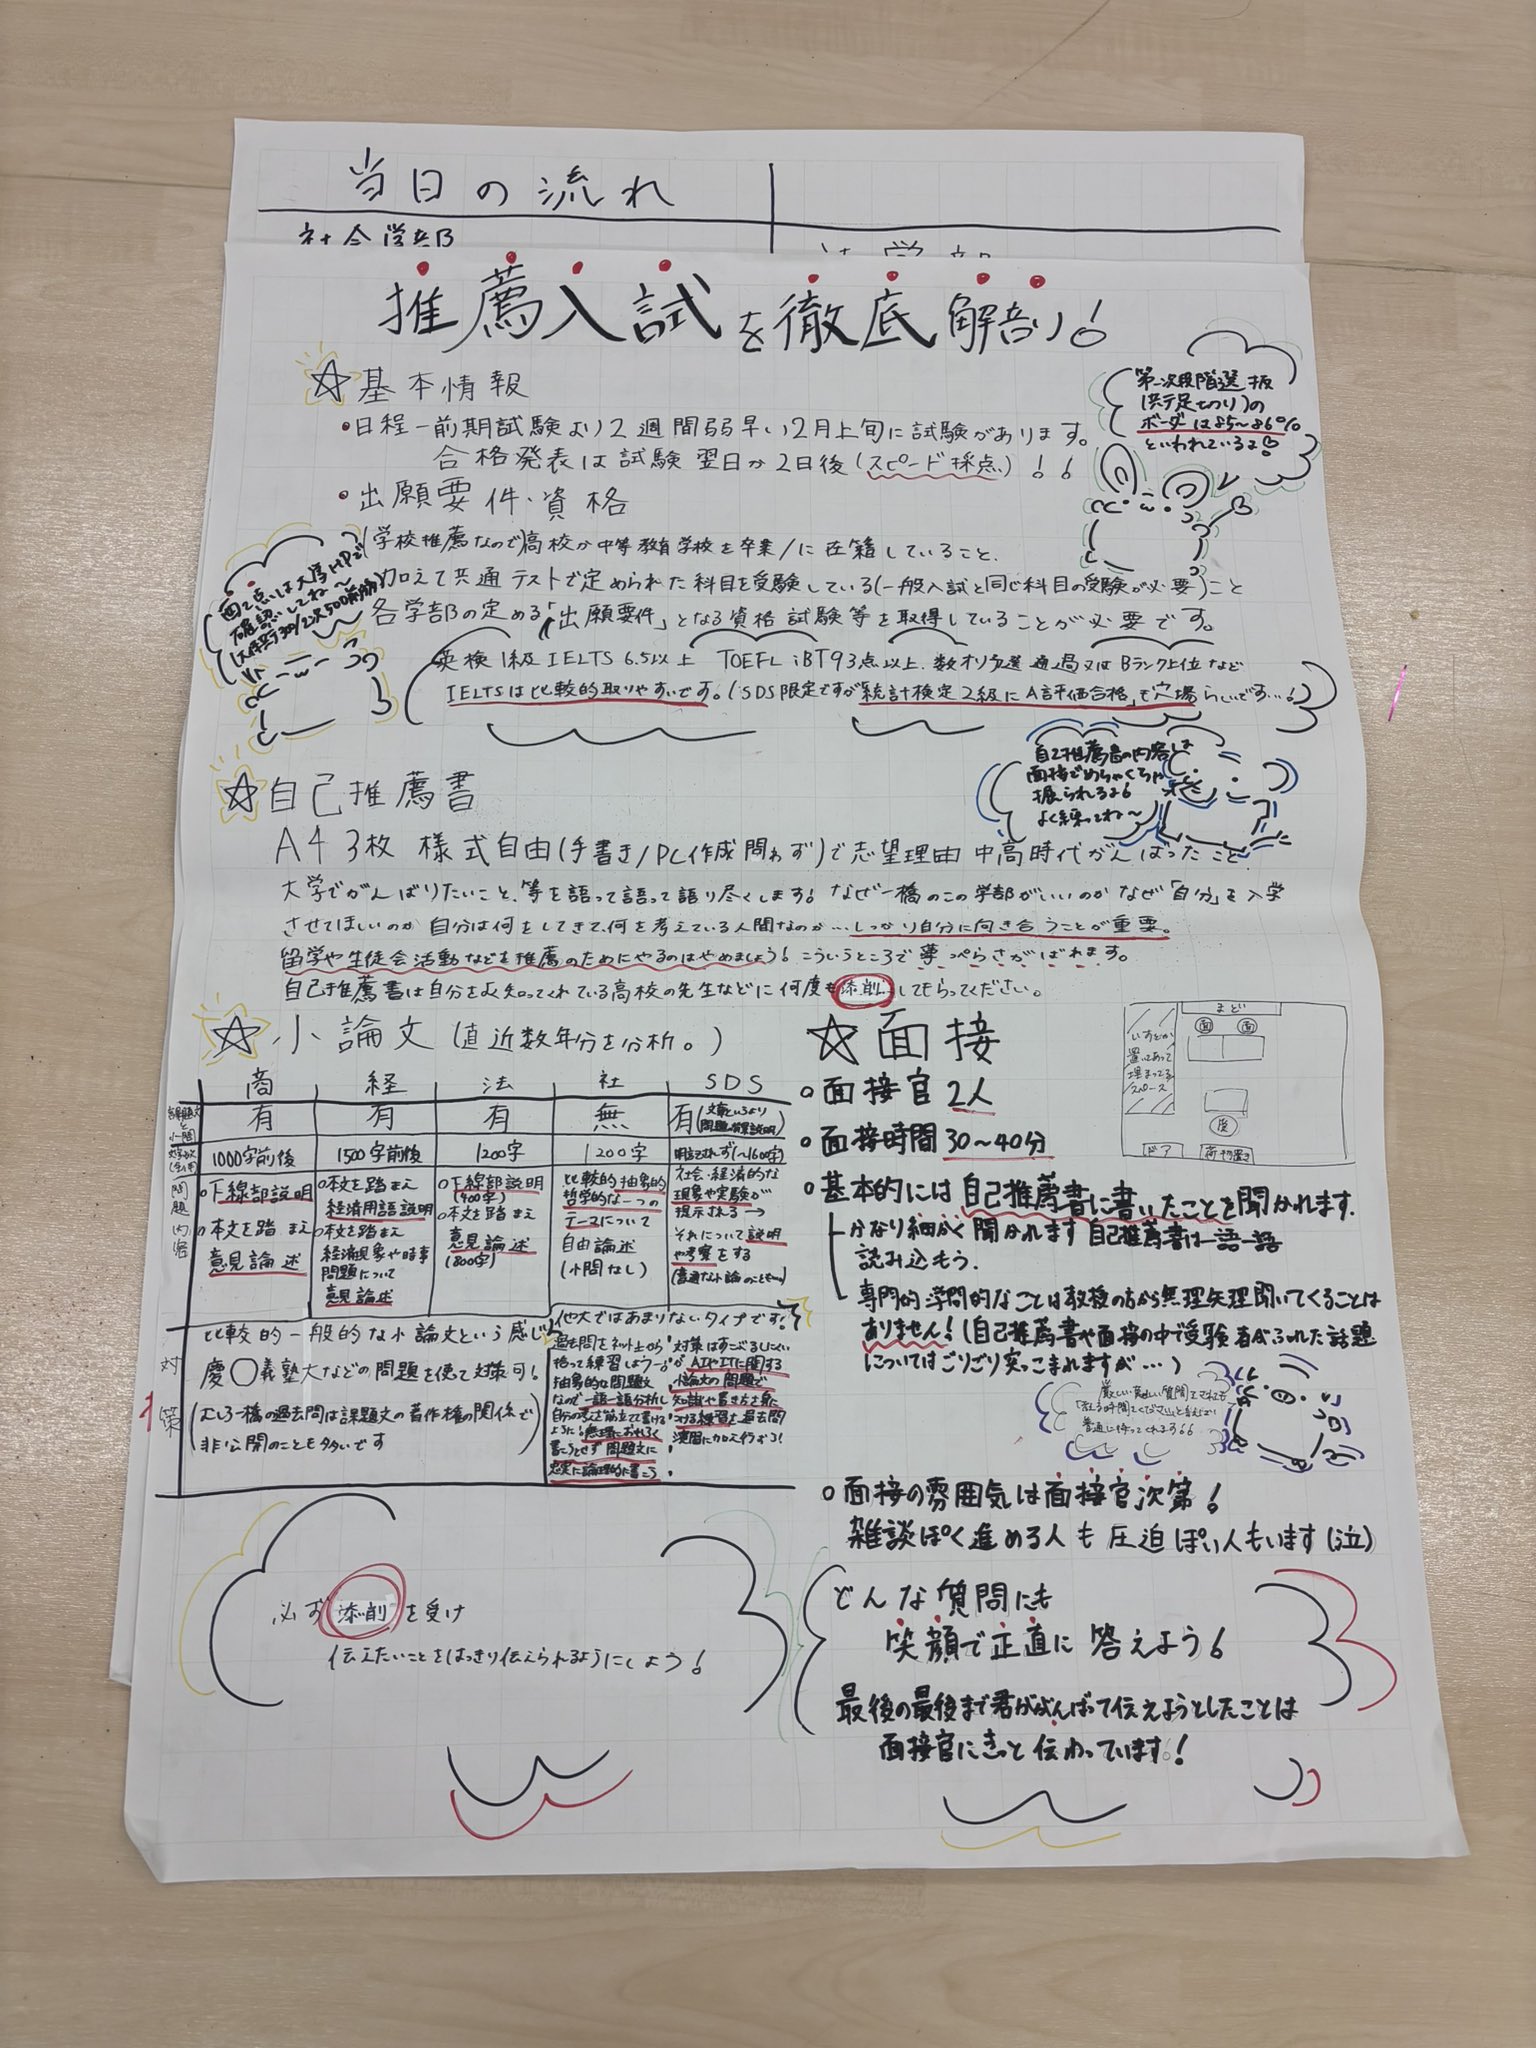 当日の流れ
社会学部
推薦入試を徹底解剖!
☆基本情報
・日程-前期試験より2週間弱早い2月上旬に試験があります。
合格発表は試験翌日か2日後(スピード採点)!!
第一次段階選抜
(共テ足切り)の
ボーダーは85~86%
といわれているよ
・出願要件・資格
(学校推薦なので)高校か中等教育学校を卒業/に在籍していること、
加えて共通テストで定められた科目を受験している(一般入試と同じ科目の受験が必要)こと
各学部の定める「出願要件」となる資格試験等を取得していることが必要です。
配点は大学HPで
確認してね~
英検1級 IELTS 6.5以上 TOEFL iBT93点以上 数オリ予選通過又はBランク上位など
IELTSは比較的取りやすいです。(SDS限定ですが「統計検定2級にA評価合格」も穴場らしいです…!
自己推薦書の内容は
面接でめちゃくちゃ
掘られるよ
よく練ってね~
☆自己推薦書
A4 3枚 様式自由(手書き/PC作成問わず)で志望理由 中高時代がんばったこと
大学でがんばりたいこと、等を語って語って語り尽くします! なぜ一橋のこの学部がいいのか なぜ「自分」を入学
させてほしいのか 自分は何をしてきて、何を考えている人間なのか…しっかり自分に向き合うことが重要。
留学や生徒会活動などを推薦のためにやるのはやめましょう! こういうところで薄っぺらさがばれます。
自己推薦書は自分をよく知ってくれている高校の先生などに何度も添削してもらってください。
☆小論文(直近数年分を分析。)
商 経 法 社 SDS
有 有 有 無 有(文章というより
1000字前後 1500字前後 1200字 1200字 明言されず(~1600字)
問題内容
○下線部説明
○本文を踏まえ
意見論述
○本文を踏まえ
経済用語説明
○本文を踏まえ
経済現象や時事
問題について
意見論述
○下線部説明
(400字)
○本文を踏まえ
意見論述
(800字)
比較的抽象的
哲学的な一つの
テーマについて
自由論述
(小問なし)
社会・経済的な
現象や実験が
提示される→
それについて説明
や考察をする
対策
比較的一般的な小論文という感じ
慶〇義塾大などの問題を使って対策可!
(むしろ一橋の過去問は課題文の著作権の関係で
非公開のことも多いです)
他大ではあまりないタイプです!
過去問をネット上から
拾って練習しよう
抽象的な問題文
なので一語一語分析し
自分の考えを筋立てて書ける
ように!無理におもしろく
書こうとせず問題文に
忠実に論理的に書こう!
対策はすごくしにくい
が AIやITに関する
小論文の問題で
知識や書き方を身に
つける練習を過去問
演習に加え行おう!
必ず添削を受け
伝えたいことをはっきり伝えられるようにしよう!
☆面接
まど
面 面
いすとか
置いてあって
埋まってる
スペース
受
ドア 荷物置き
○面接官2人
○面接時間30~40分
○基本的には自己推薦書に書いたことを聞かれます。
かなり細かく聞かれます 自己推薦書は一語一語
読み込もう。
専門的学問的なことは教授の方から無理矢理聞いてくることは
ありません!(自己推薦書や面接の中で受験者がふれた話題
についてはごりごり突っこまれますが…)
厳しい・難しい質問をされても
「考える時間をください」と言えば
普通に待ってくれます
○面接の雰囲気は面接官次第!
雑談ぽく進める人も圧迫ぽい人もいます(泣)
どんな質問にも
笑顔で正直に答えよう!
最後の最後まで君ががんばって伝えようとしたことは
面接官にきっと伝わっています!